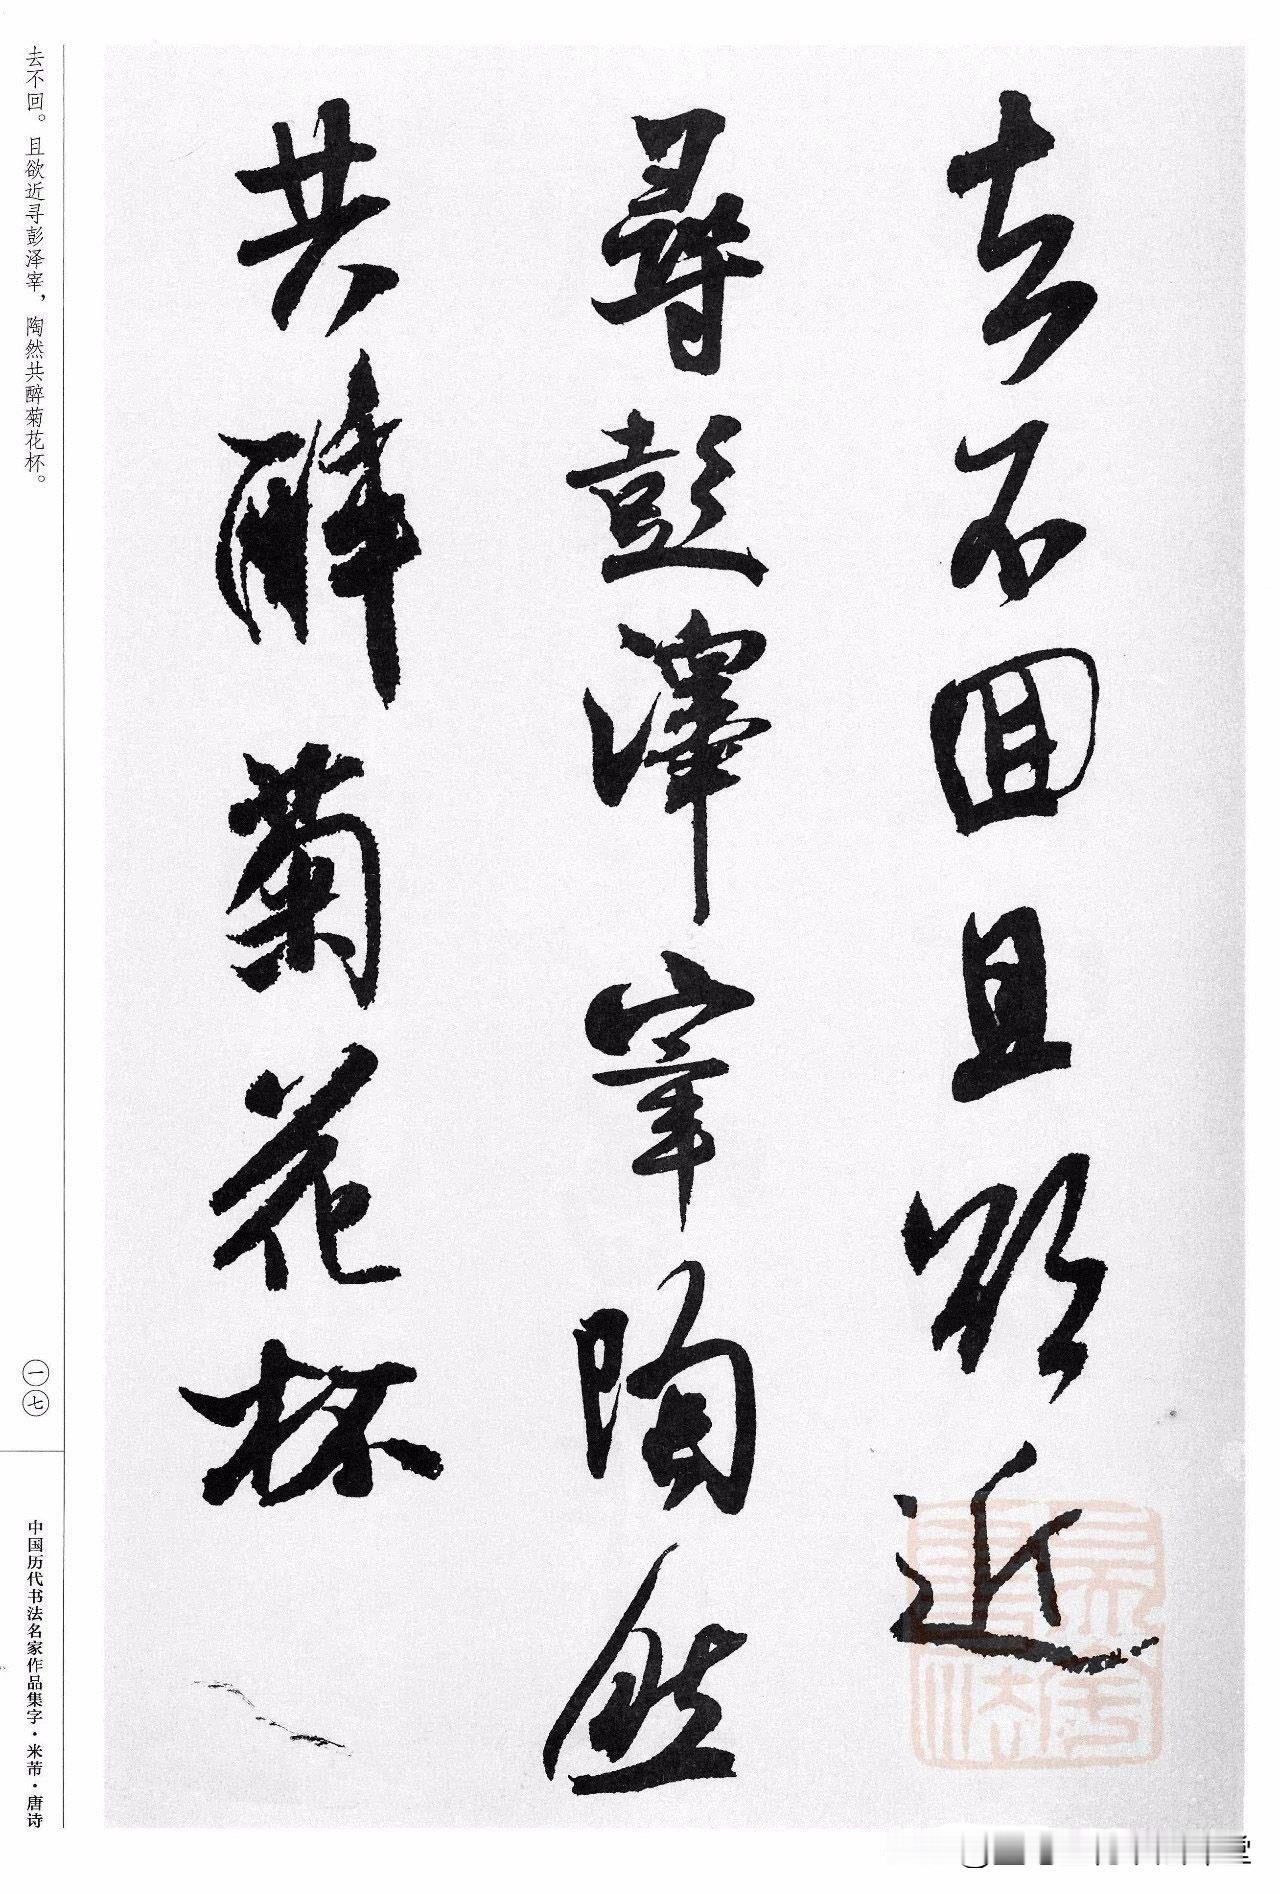 去不回且欲近
尋彭澤宰陶然
共醉菊花杯
去不回。且欲近寻彭泽宰，陶然共醉菊花杯。
一七
中国历代书法名家作品集字·米芾·唐诗